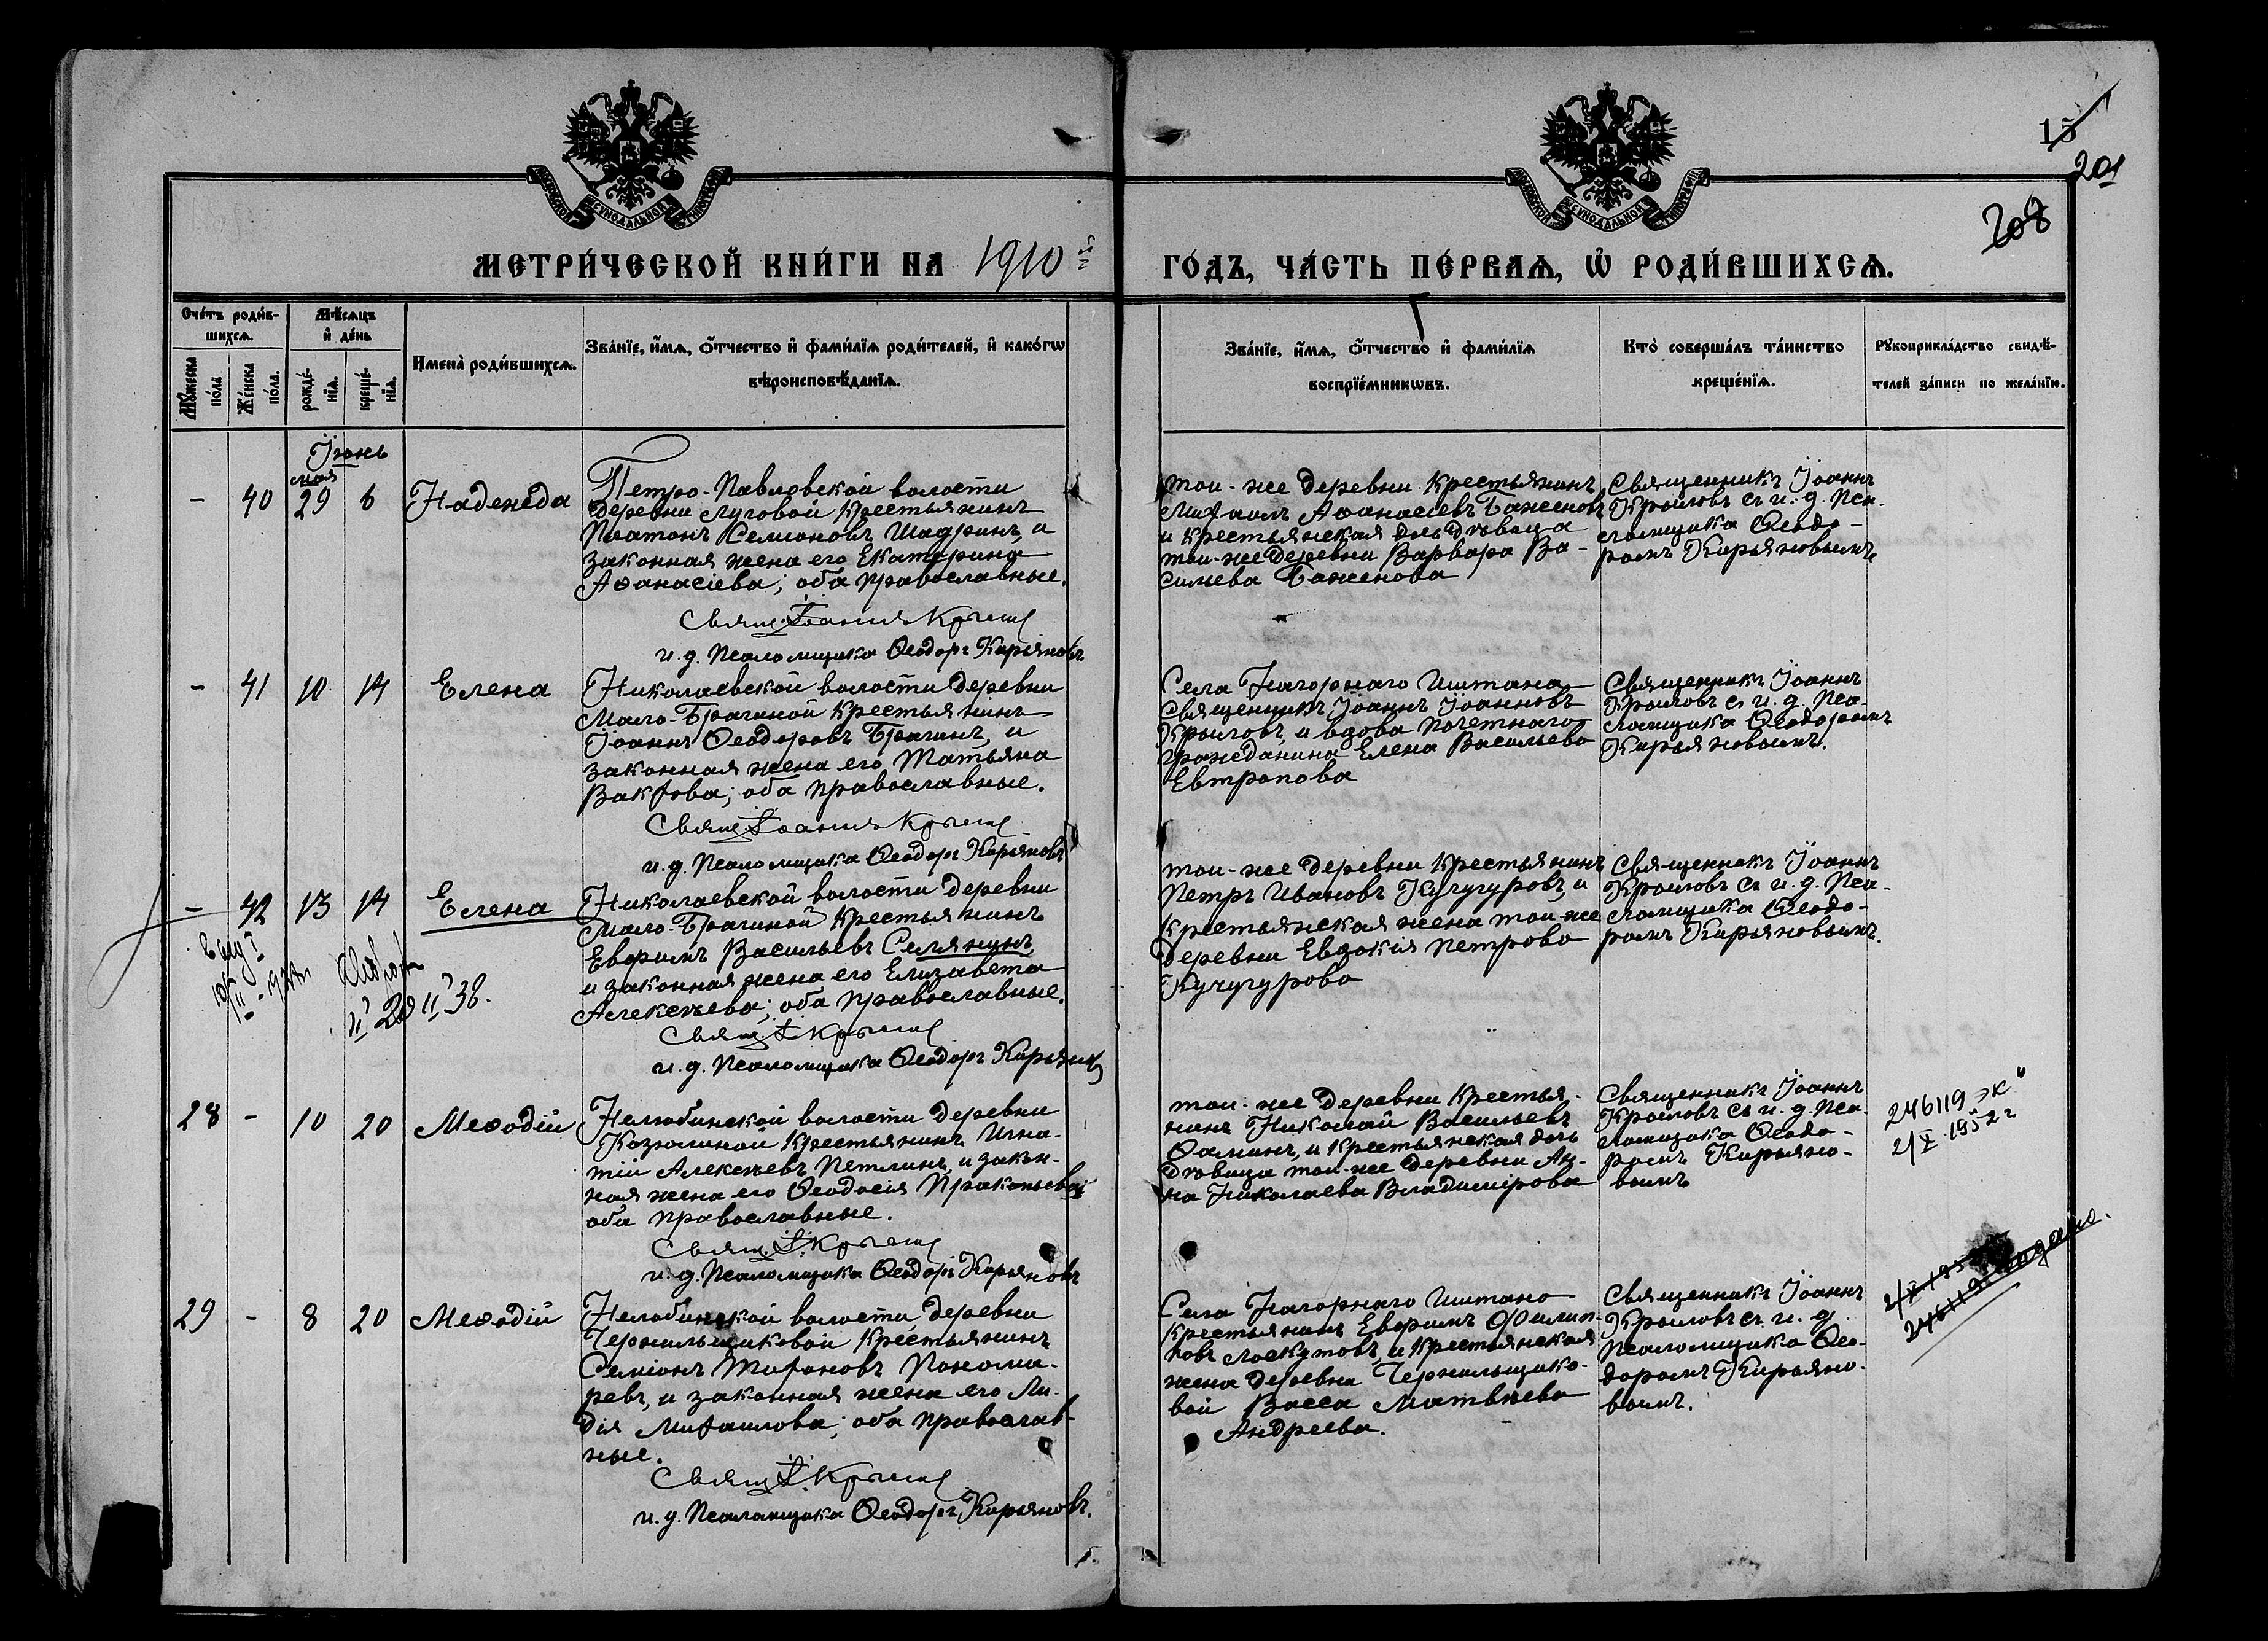 МОСКОВСКОЙ СѴНОДАЛЬНОЙ ТИПОГРАФІИ
МОСКОВСКОЙ СѴНОДАЛЬНОЙ ТИПОГРАФІИ
15
201
208
МЕТРИ́ЧЕСКОЙ КНИ́ГИ НА 1910й
ГО́ДЪ, ЧА́СТЬ ПЕ́РВАѦ, Ѽ РОДИ́ВШИХСѦ.
Счéтъ роди́в-
шихсѧ.
Мꙋ́жеска
по́ла
Же́нска
по́ла.
Мѣ́сѧцъ
и҆ де́нь
рожде́-
нїѧ.
креще́-
нїѧ.
И҆мена̀ роди́вшихсѧ.
Зва́нїе, и҆́мѧ, ѻ҆́тчество и҆ фами́лїѧ роди́телей, и҆ како́гѡ
вѣроисповѣ́данїѧ.
Зва́нїе, и҆́мѧ, ѻ҆́тчество и҆ фами́лїѧ
воспрїе́мникѡвъ.
Кто̀ соверша́лъ та́инство
креще́нїѧ.
Рꙋкоприкла́дство свидѣ́-
телей за́писи по жела́нїю.
Іюнь
мая
- 40 29 6 Надежда
Петро-Павловской волости
деревни Луговой крестьянинъ
Платонъ Семіоновъ Шадринъ, и
законная жена его Екатерина
Аѳанасіева; оба православные.
Свящ. Іоаннъ Крылов
и. д. Псаломщика Ѳеодоръ Кирьяновъ
той-же деревни крестьянинъ
Михаилъ Аѳанасіевъ Баженовъ
и крестьянская дочь дѣвица
той-же деревни Варвара Ва-
сильева Баженова
Священникъ Іоаннъ
Крыловъ съ и. д. Пса-
ломщика Ѳеодо-
ромъ Кирьяновымъ
- 41 10 14 Елена
Николаевской волости деревни
Мало-Брагиной крестьянинъ
Іоаннъ Ѳеодоровъ Брагинъ, и
законная жена его Татьяна
оба православные.
Свящ. Іоаннъ Крылов
и. д. Псаломщика Ѳеодоръ Кирьяновъ
Села Нагорнаго Иштана
Священникъ Іоаннъ Іоанновъ
Крыловъ, и вдова почетнаго
гражданина Елена Васильева
Евтропова
Священникъ Іоаннъ
Крыловъ съ и. д. Пса-
ломщика Ѳеодоромъ
Кирьяновымъ.
- 42 13 14 Елена
Николаевской волости деревни
Мало-Брагиной крестьянинъ
Евѳимъ Васильевъ Селянинъ
и законная жена его Елизавета
Алексѣева; оба православные.
Свящ. І. Крылов
и. д. Псаломщика Ѳеодоръ Кирьянов
той-же деревни крестьянинъ
Петръ Ивановъ Кучугуровъ, и
крестьянская жена той-же
деревни Евдокія Петрова
Кучугурова
Священникъ Іоаннъ
Крыловъ съ и. д. Пса-
ломщика Ѳеодо-
ромъ Кирьяновымъ.
28 - 10 20 Меѳодій
Нелюбинской волости деревни
Козюлиной крестьянинъ Игна-
тій Алексѣевъ Петлинъ, и закон-
ная жена его Ѳеодосія Прокопьева;
оба православные.
Свящ. І. Крылов
и. д. Псаломщика Ѳеодоръ Кирьяновъ
той-же деревни крестья-
нинъ Николай Васильевъ
Ѳоминъ, и крестьянская дочь
дѣвица той-же деревни Ан-
на Николаева Владимірова
Священникъ Іоаннъ
Крыловъ съ и. д. Пса-
ломщика Ѳеодо-
ромъ Кирьяно-
вымъ
246119 ЭК
2/X 1952 г
29 - 8 20 Меѳодій
Нелюбинской волости деревни
Чернильщиковой крестьянинъ
Семіонъ Тихоновъ Понома-
ревъ, и законная жена его Ли-
дія Михаилова; оба православ-
ные.
Свящ. І. Крылов
и. д. Псаломщика Ѳеодоръ Кирьяновъ.
Села Нагорнаго Иштана
крестьянинъ Евѳимъ Филип-
повъ Лоскутовъ, и крестьянская
жена деревни Чернильщико-
вой Васса Матвѣева
Андреева.
Священникъ Іоаннъ
Крыловъ съ и. д.
Псаломщика Ѳео-
доромъ Кирьяно-
вымъ.
246119